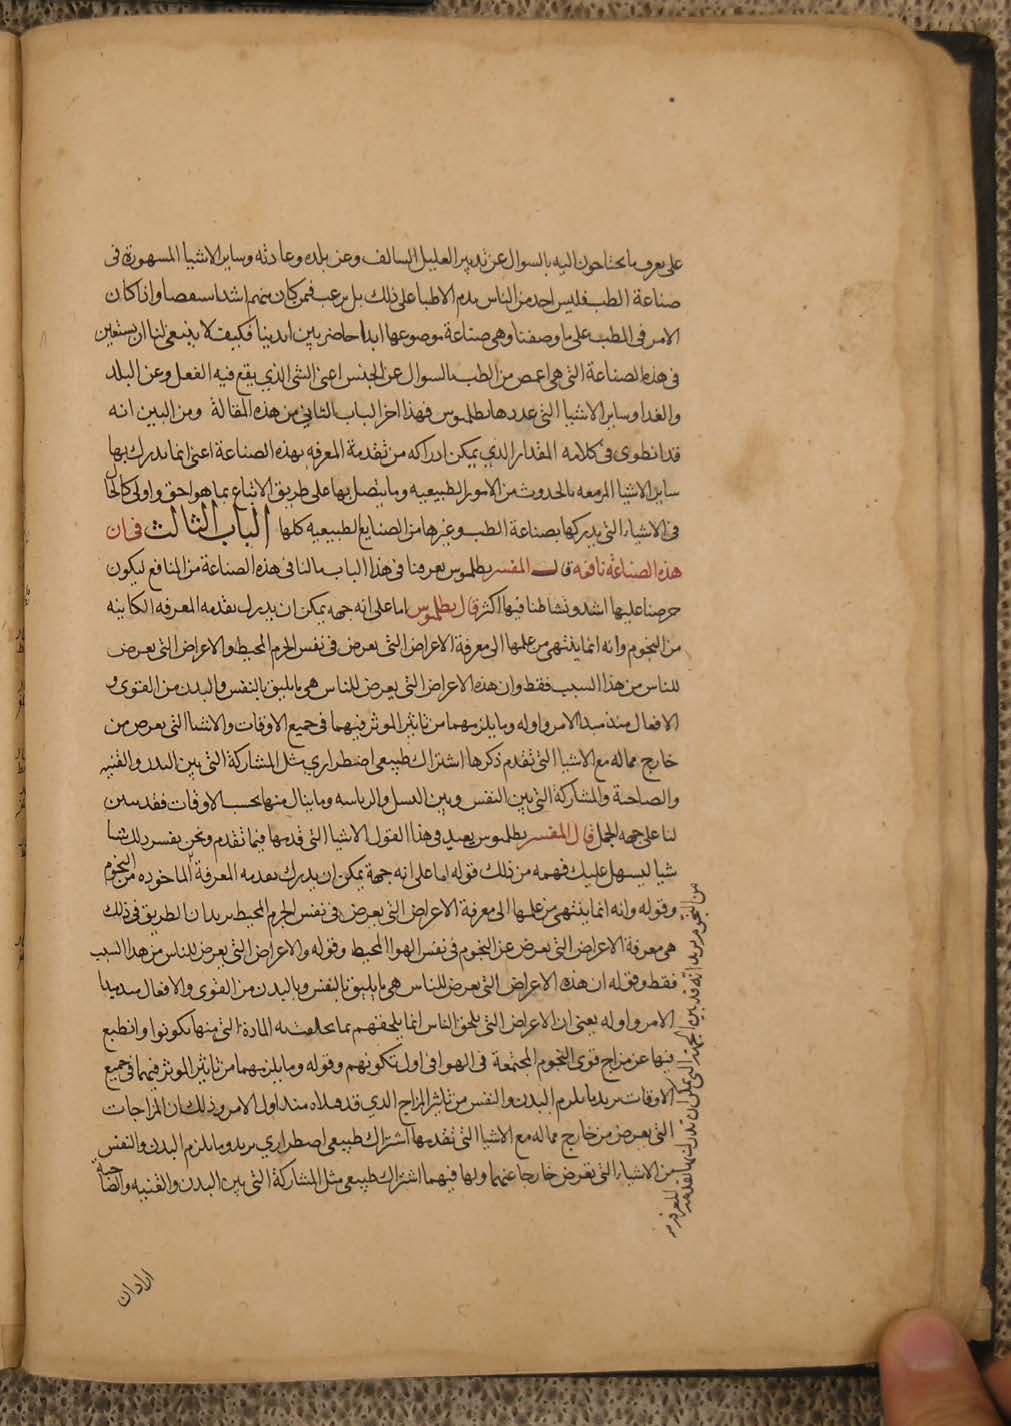 على تعرف ما يحتاجون اليه بالسوال عن تدبير العليل السالف وعن بلده وعادته وساير الاشيا المشهورة فى
صناعة الطب فليس احد من الناس يذم الاطبا على ذلك بل يرغب فمن كان منهم اشد استقصا واذا كان
الامر فى الطب على ما وصفنا وهى صناعة موضوعها ابدا حاضر بين ايدينا فكيف لا ينبغى لنا ان نستعين
فى هذه الصناعة التى هى اغمض من الطب بالسوال عن الجنس اعنى الشى الذي يقع فيه الفعل وعن البلد
والغدا وساير الاشيا التى عددها بطلميوس فهذا اخر الباب الثانى من هذه المقالة ومن البين انه
قد انطوى فى كلامه المقدار الذي يمكن ادراكه من تقدمة المعرفه بهذه الصناعة اعنى انما يدرك بها
ساير الاشيا المزمعه بالحدوث من الامور الطبيعيه وما يتصل بها على طريق الاتباع بما هو احق واولى كالحال
فى الاشياء التى يدركها بصناعة الطب وغيرها من الصنايع الطبيعيه كلها الباب الثالث فى ان
هذه الصناعة نافعه قال المفسر بطلميوس يعرفنا فى هذا الباب مالنا فى هذه الصناعة من المنافع ليكون
حرصنا عليها اشد ونشاطنا فيها اكثر قال بطلميوس اما على انه جهه يمكن ان يدرك بتقدمه المعرفه الكاينه
من النجوم وانه انما ينتهى من علمها الى معرفة الاعراض التى يعرض فى نفس الجرم المحيط والاعراض التى يعرض
للناس من هذا السبب فقط وان هذه الاعراض التى يعرض للناس هى ما يليق بالنفس والبدن من القوى و
الافعال منذ مبدا الامر واوله وما يلزمهما من تاثير الموثر فيهما فى جميع الاوقات والاشيا التى يعرض من
خارج مما له مع الاشيا التى تقدم ذكرها اشتراك طبيعى اضطراري مثل المشاركة التى بين البدن والقنيه
والصاحبة والمشاركة التى بين النفس وبين النسل والرياسه وما ينال منها بحسب الاوقات فقد تبين
لنا على جهه الجمل قال المفسر بطلميوس يعيد فى هذا القول الاشيا التى قدمها فيما تقدم ونحن نفسر ذلك شيا
شيا ليسهل عليك فهمه من ذلك قوله اما على انه جهة يمكن ان يدرك بتقدمه المعرفة الماخوذه من النجوم
وقوله وانه انما ينتهى من علمها الى معرفة الاعراض التى يعرض فى نفس الجرم المحيط يريد ان الطريق فى ذلك
هى معرفة الاعراض التى يعرض عن النجوم فى نفس الهوا المحيط وقوله والاعراض التى يعرض للناس من هذا السبب
فقط وقوله ان هذه الاعراض التى يعرض للناس هى ما يليق بالنفس وبالبدن من القوى والافعال منذ مبدا
الامر واوله يعنى ان الاعراض التى يلحق الناس انما يلحقهم بما يحالفت به المادة التى منها تكونوا وانطبع
فيها عن مزاج قوى النجوم المجتمعة فى الهوا فى اول تكونهم وقوله وما يلزمهما من تاثير الموثر فيهما فى جميع
الاوقات يريد ما يلزم البدن والنفس من تاثير المزاج الذي قد قبلاه منذ اول الامر وذلك ان المزاجات
التى يعرض من خارج مما له مع الاشيا التى تقدمها اشتراك طبيعى اضطراري يريد وما يلزم البدن والنفس
من الاشياء التى تعرض خارجا عنهما ولها فيهما اشتراك طبيعى مثل المشاركة التى بين البدن والقنيه والصاحبة
من النجوم يريد انه قد بين الجهة التى يمكن ان تدرك بها تقدمة المعرفه
ارادان